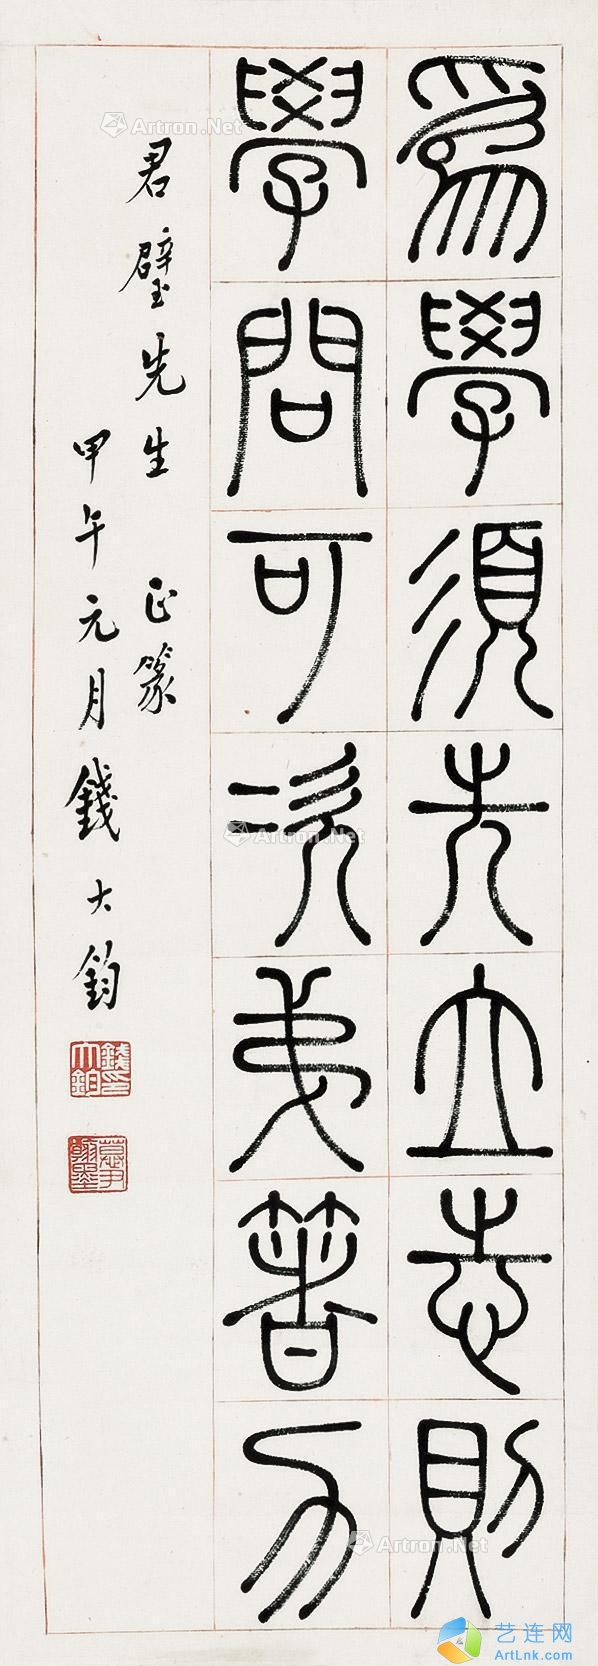 爲學須先立志則
學問可次弟著力
君璧先生 正篆
甲午元月錢大鈞
錢印大鈞
慕尹翰墨
Artron.Net
Artron.Net
Artron.Net
Artron.Net
艺连网
ArtLnk.com